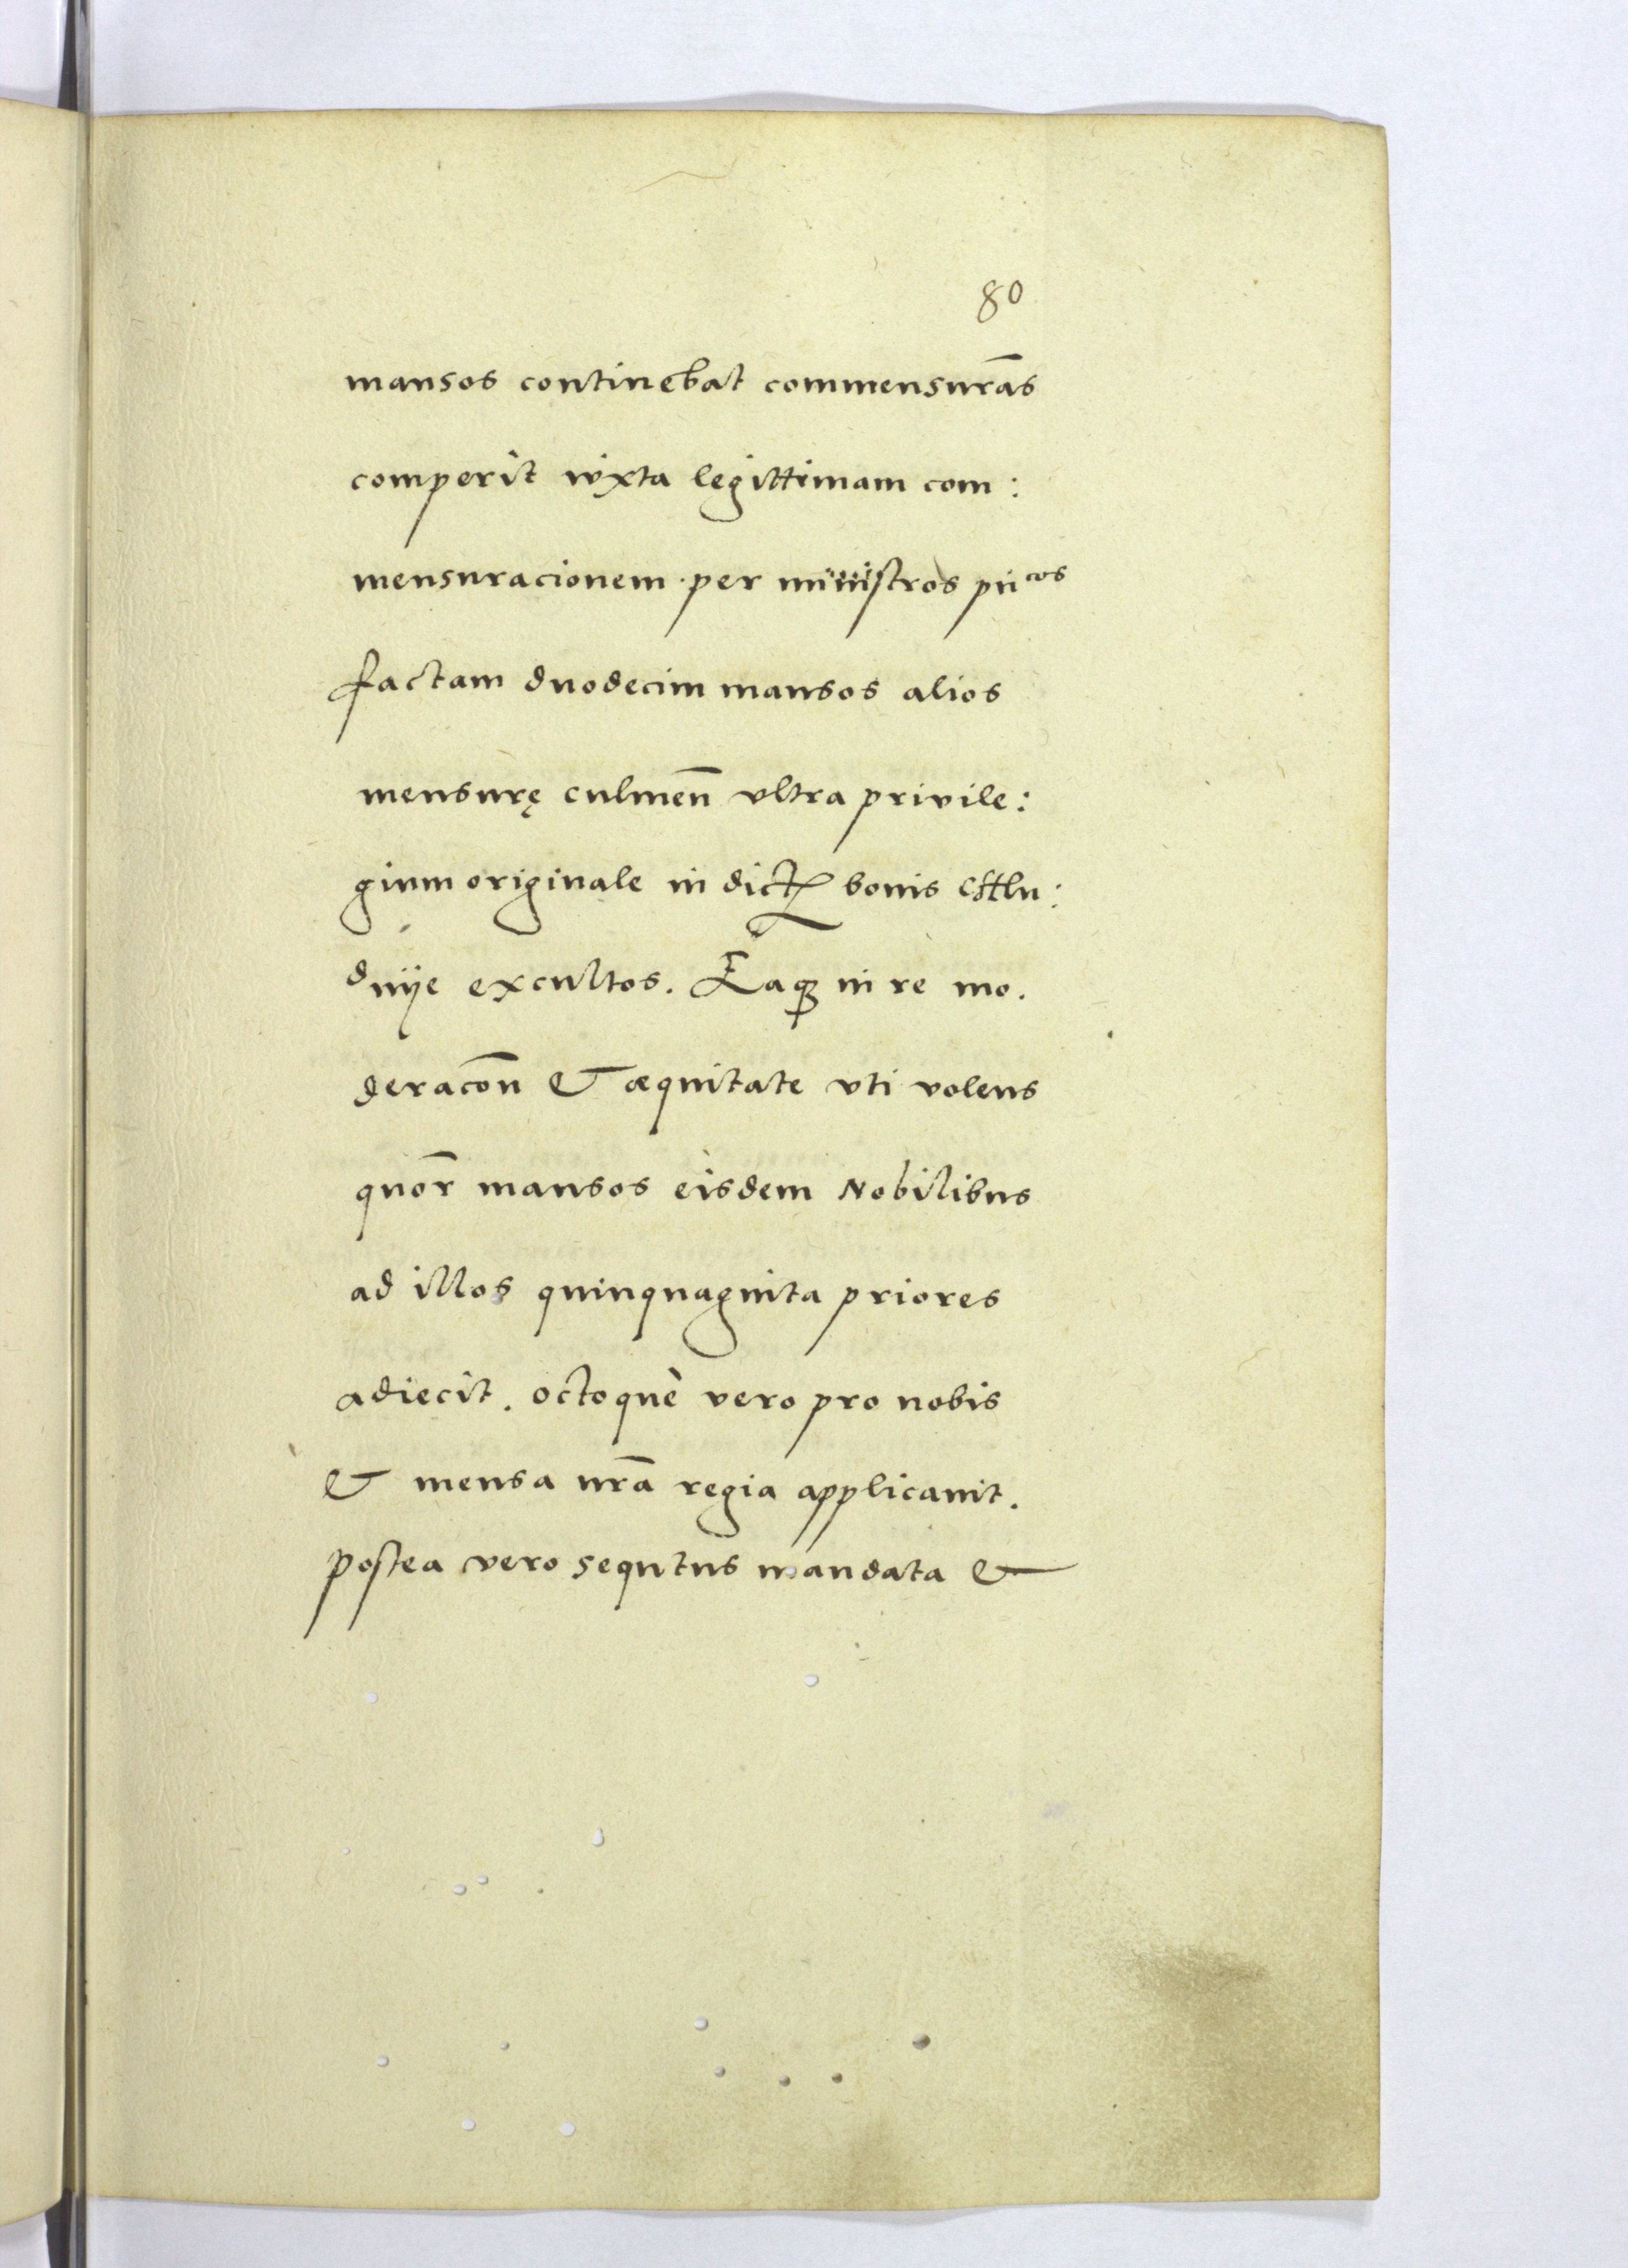 80
mansos continebat commensurãs
comperit iuxta legittimam com:
mensuracionem per ministros pũcos
factam duodecim mansos alios
mensurę culmeñ vltra privile:
gium originale in dict bonis
excultos. Eaqꝫ in re mo.
deracoñ & æquitate vti volens
quor̃ mansos eisdem Nobilibus
ad illos quinquaginta priores
adiecit. octoquè vero pro nobis
& mensa nr̃a regia applicauit.
postea vero sequtus mandata &